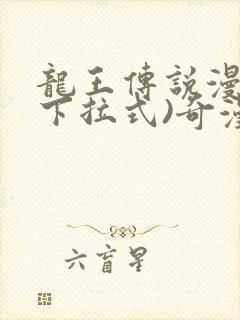 龍王傳說漫
下拉式)奇漫
六盲星